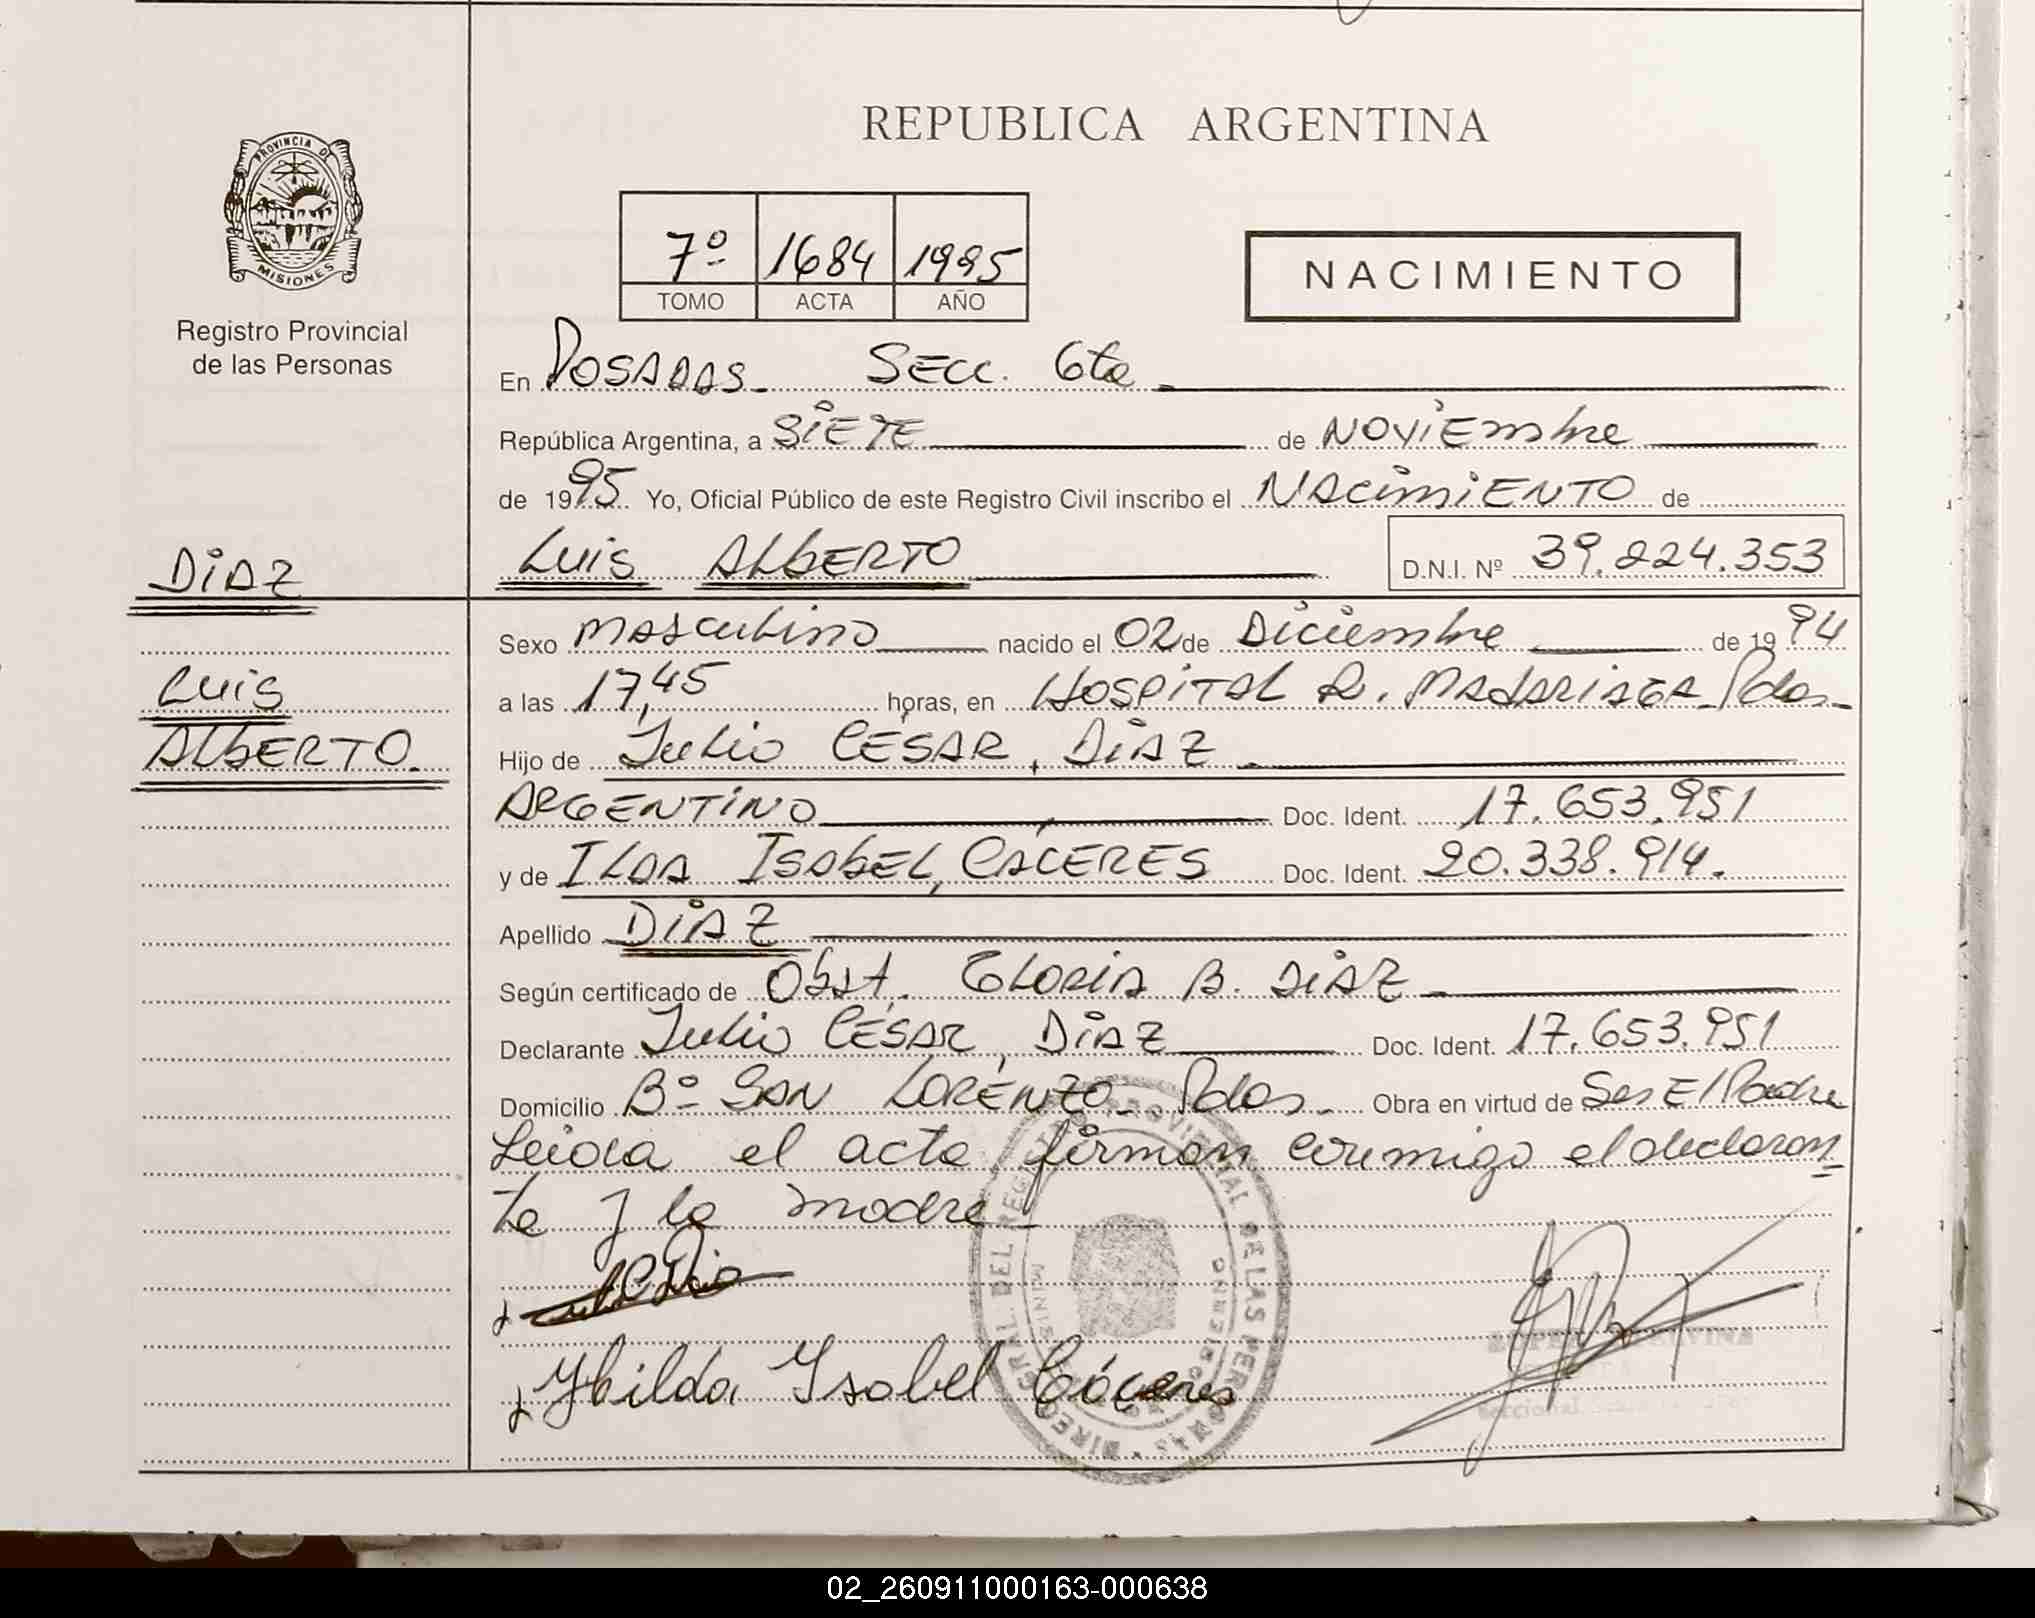 REPUBLICA ARGENTINA
PROVINCIA DE
MISIONES
Registro Provincial
de las Personas
7º 1684 1995
TOMO ACTA AÑO
NACIMIENTO
En POSADAS. SECC. 6ta
República Argentina, a SIETE de NOVIEMbre
de 1995 Yo, Oficial Público de este Registro Civil inscribo el NACIMIENTO de
LUIS ALBERTO D.N.I. Nº 39.224.353
DIAZ
LUIS
ALBERTO.
Sexo MASCULINO nacido el 02 de DICIEMbre de 1994
a las 17,45 horas, en HOSPITAL R. MADARIAGA Pdas.
Hijo de JULIO CÉSAR, DIAZ
ARGENTINO Doc. Ident. 17.653.951
y de ILDA ISABEL, CACERES Doc. Ident. 20.338.914.
Apellido DIAZ
Según certificado de Obst. GLORIA B. DIAZ
Declarante JULIO CÉSAR, DIAZ Doc. Ident. 17.653.951
Domicilio Bº SAN LORENZO Pdas. Obra en virtud de Ser El Padre
Leida el acta firman conmigo el declaran
te y la madre
Hilda Ysabel Cáceres
DIRECC. GRAL. DEL REGISTRO PROVINCIAL DE LAS PERSONAS
Seccional
02_260911000163-000638